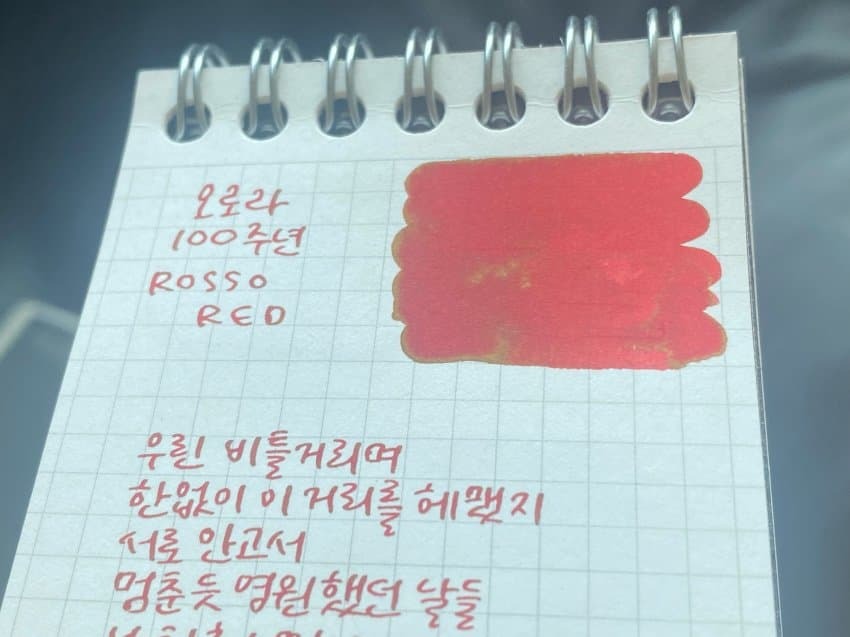 오로라
100주년
ROSSO
RED
우린 비틀거리며
한없이 이 거리를 헤맸지
서로 안고서
멈춘듯 영원했던 날들